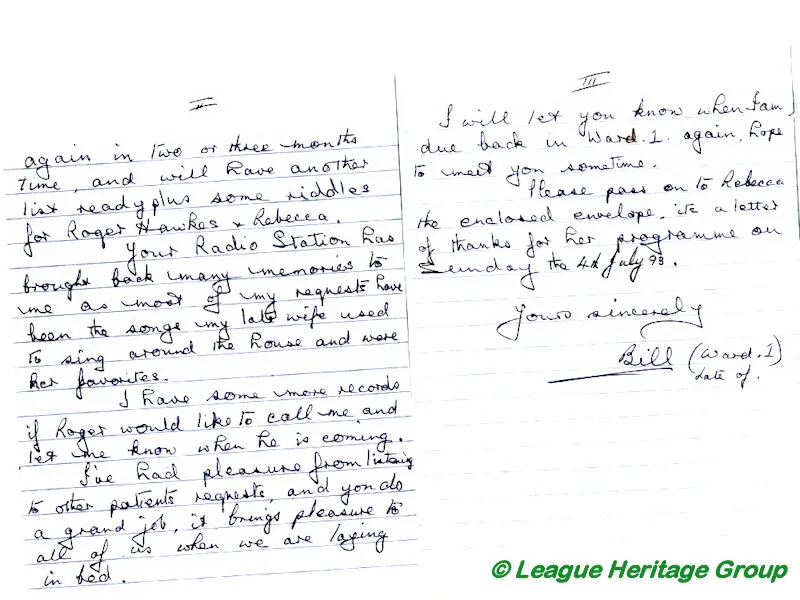 II
again in two or three months
time, and will have another
list ready plus some riddles
for Roger Hawkes & Rebecca.
Your Radio Station has
brought back many memories to
me as most of my requests have
been the songs my late wife used
to sing around the house and were
her favorites.
I have some more records
if Roger would like to call me and
let me know when he is coming.
I've had pleasure from listening
to other patients requests, and you do
a grand job, it brings pleasure to
all of us when we are laying
in bed.
III
I will let you know when I am
due back in Ward. 1. again, hope
to meet you sometime.
Please pass on to Rebecca
the enclosed envelope, its a letter
of thanks for her programme on
Sunday the 4th July 93.
Yours sincerely
Bill (Ward. 1)
Late of.
© League Heritage Group